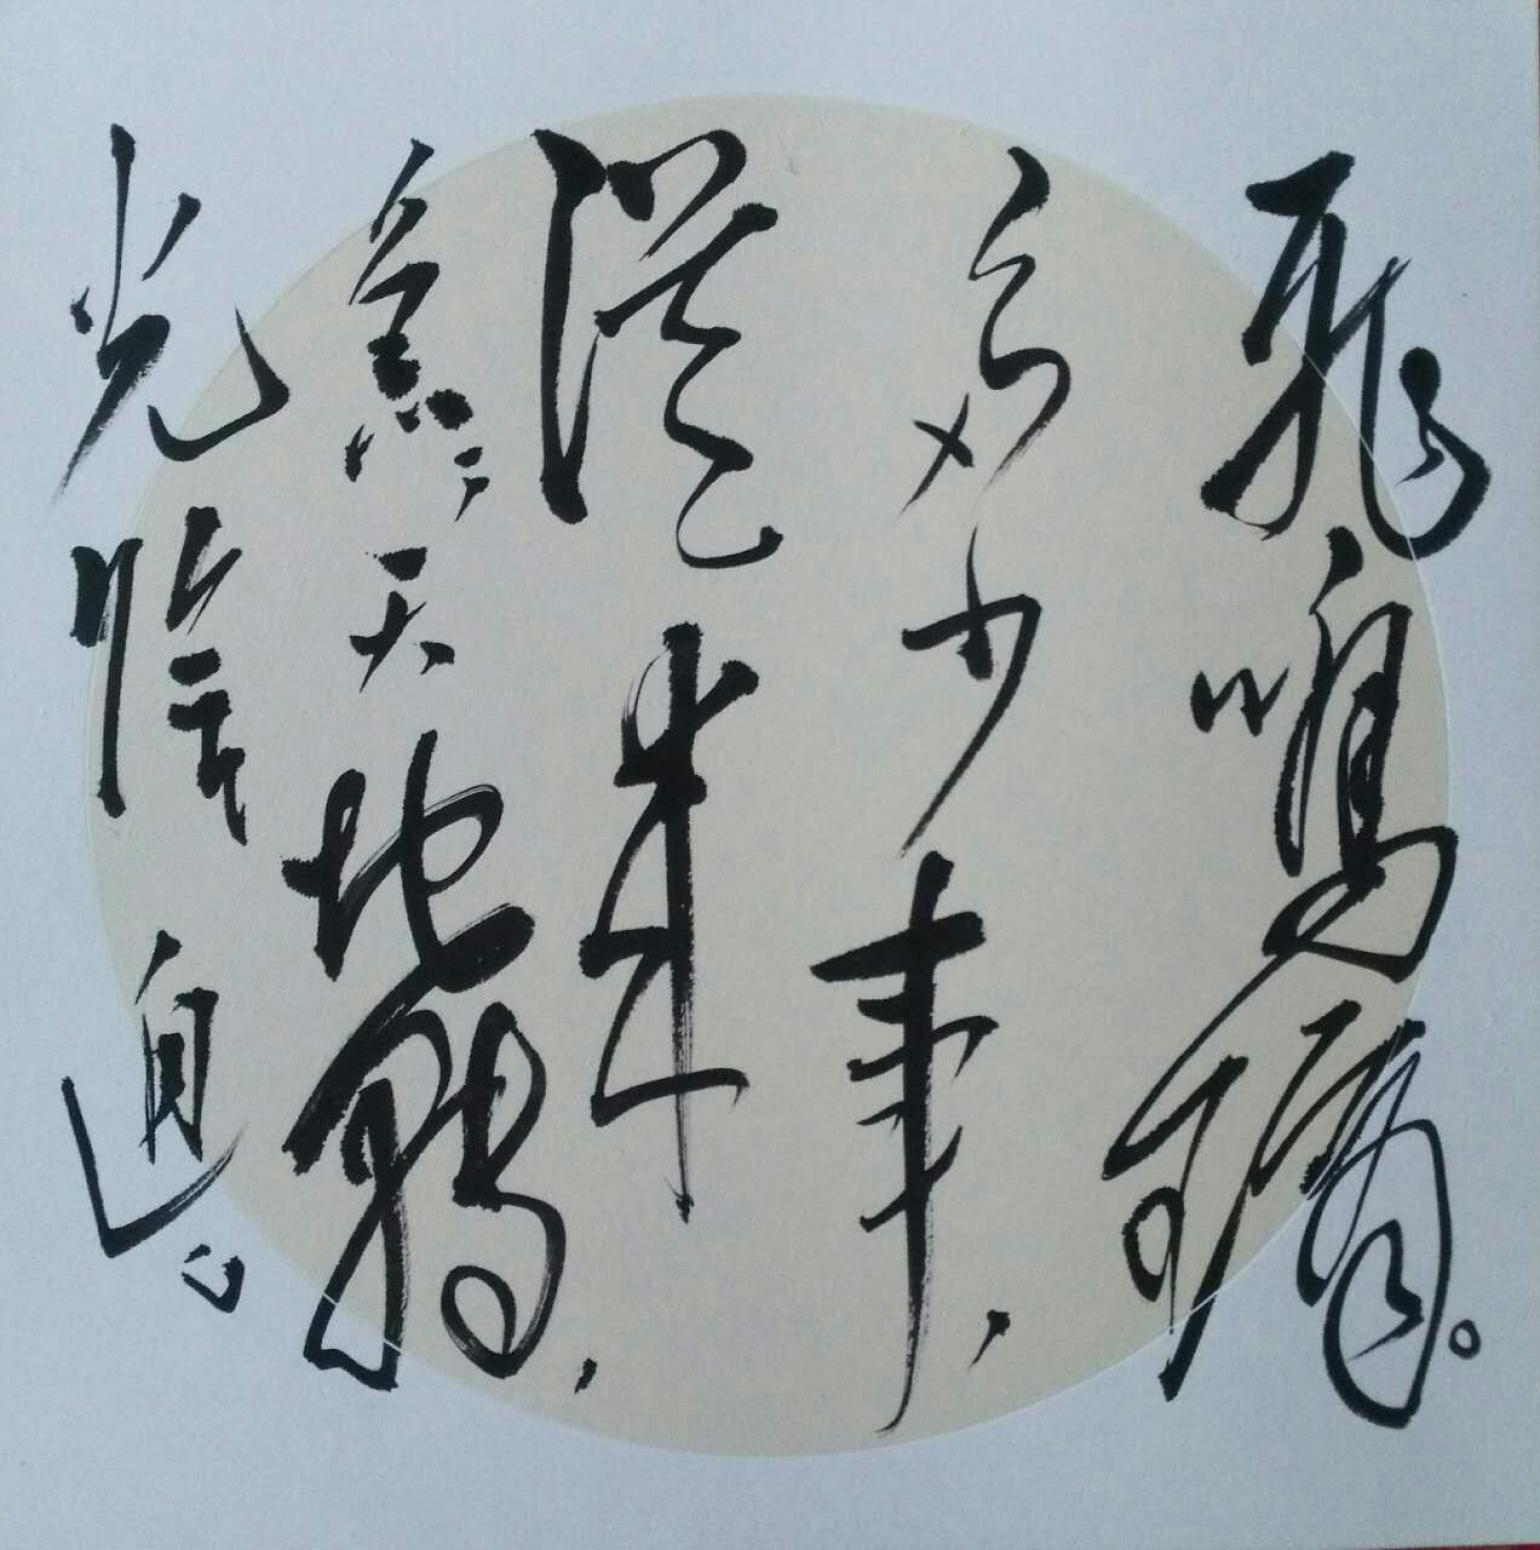 飛鳴鏑。
多少事，
從來
急；天地轉，
光陰迫。